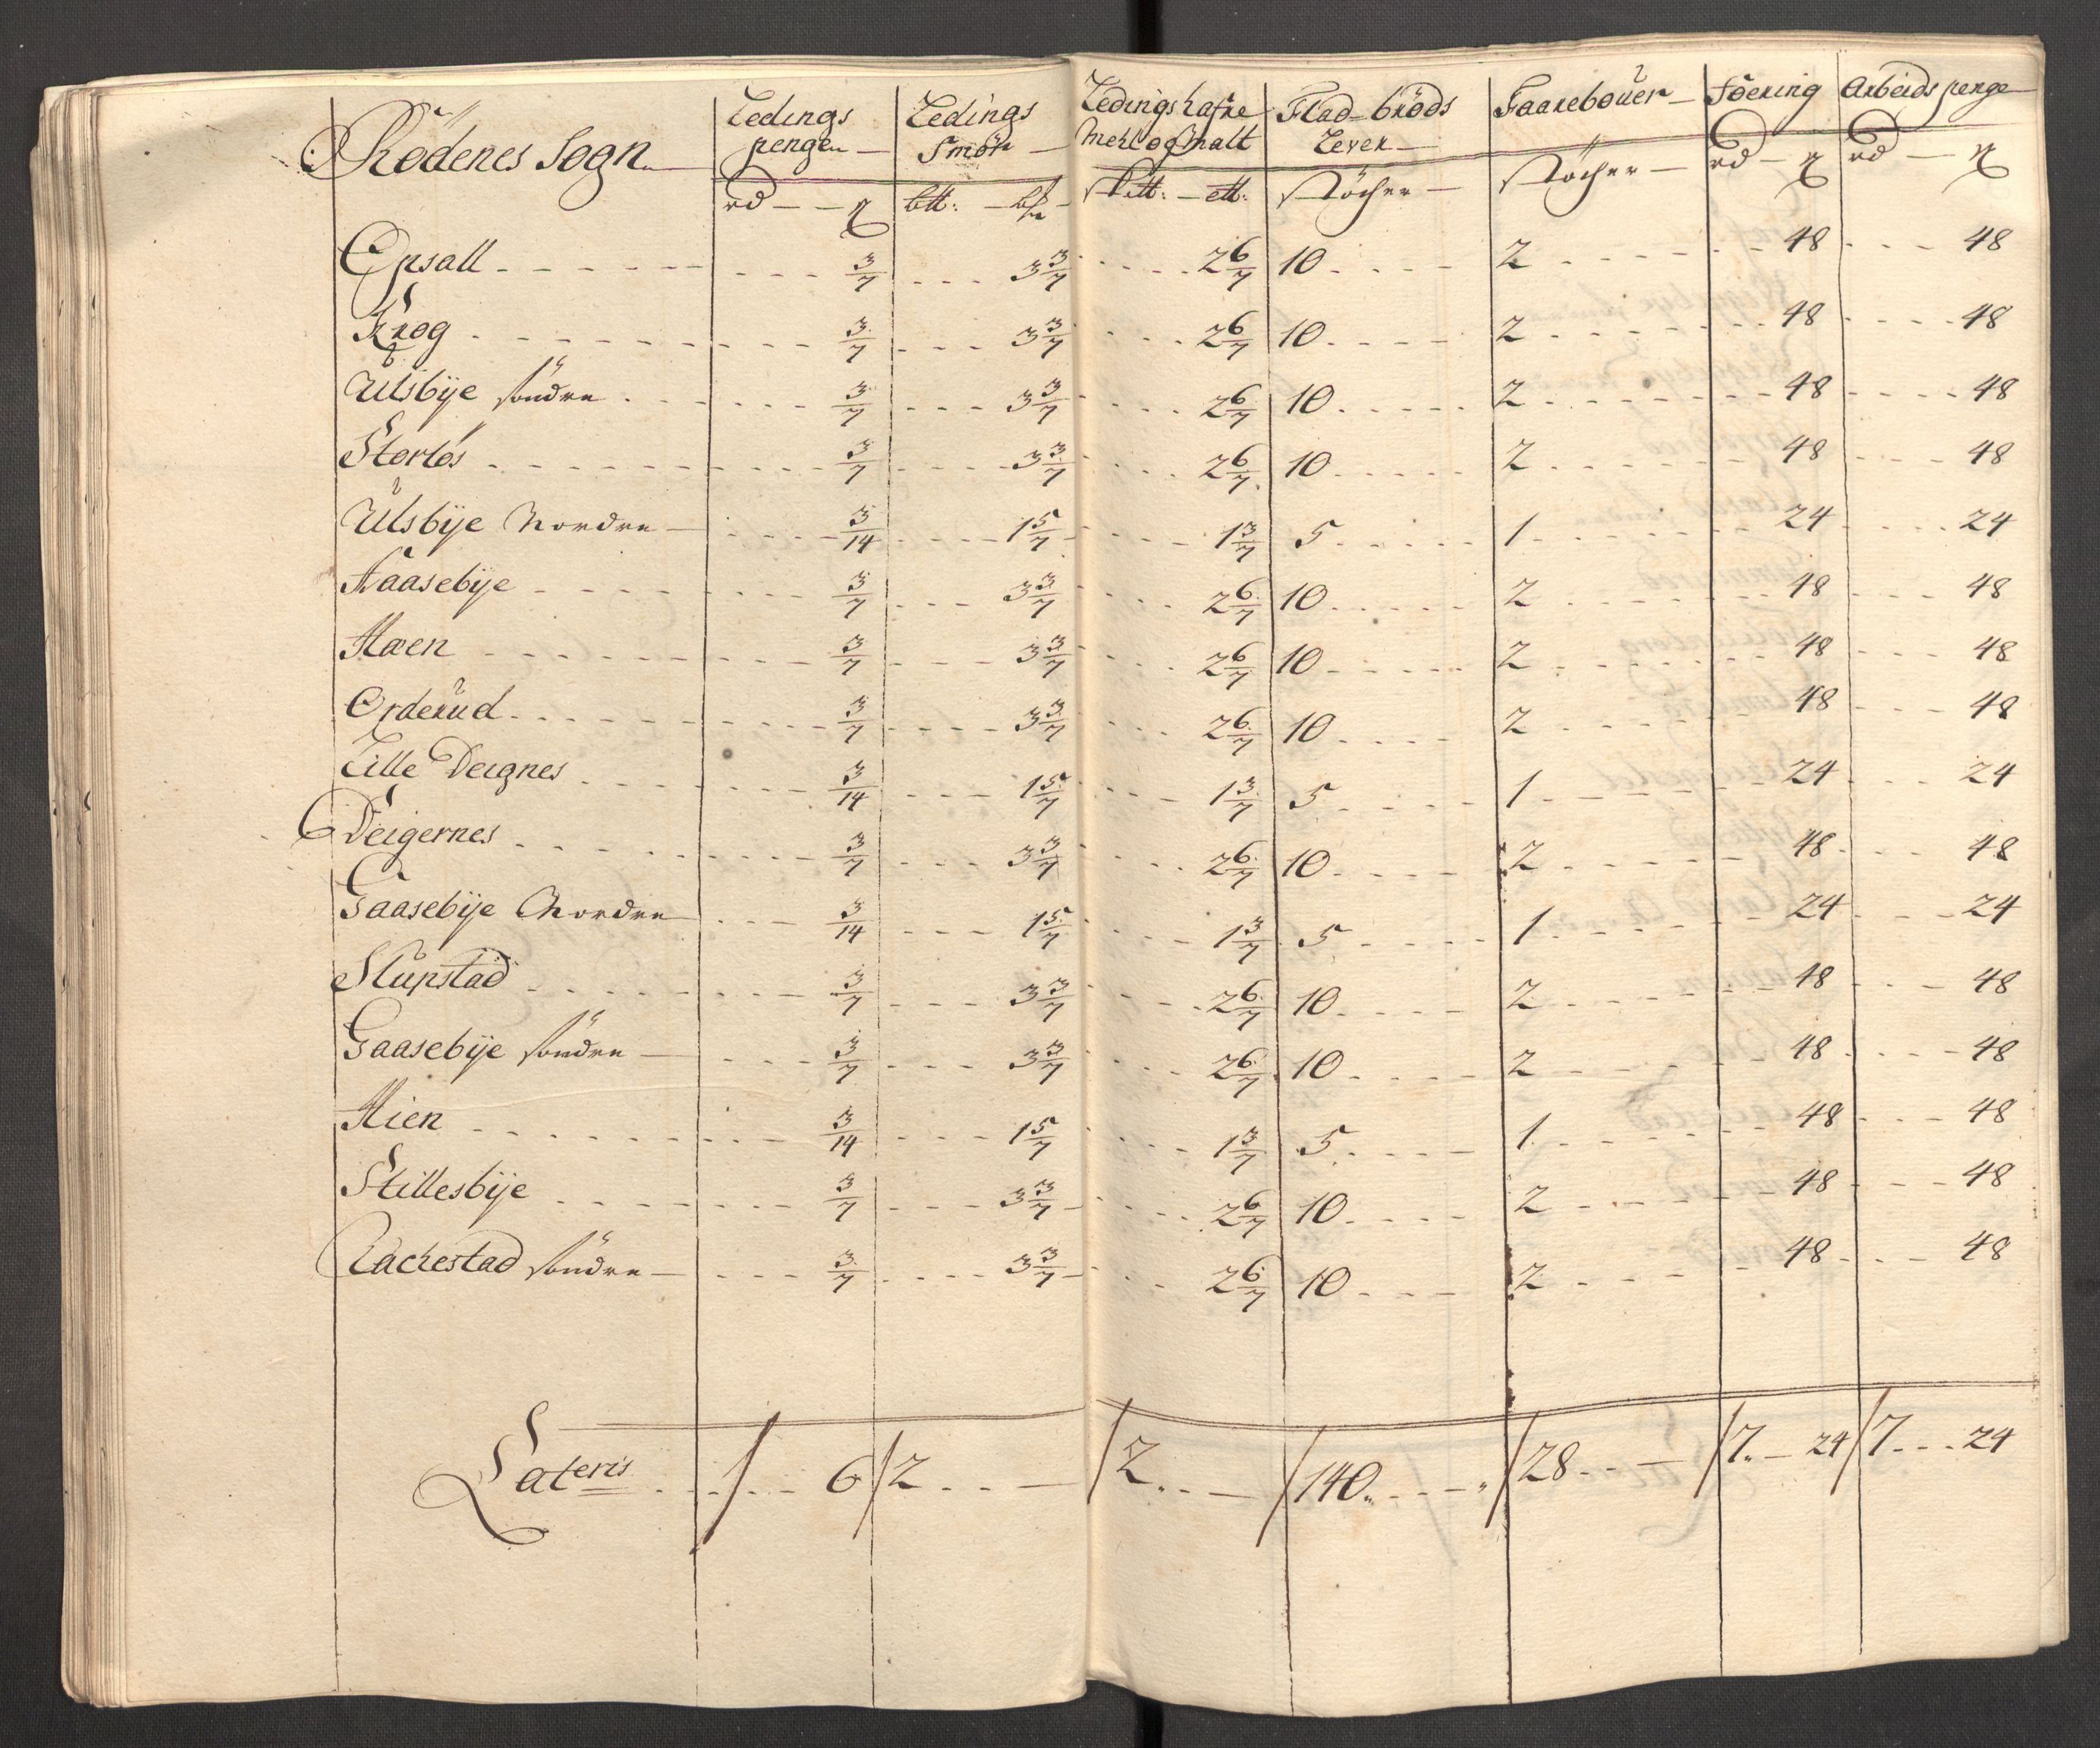 Rödenes Sogn Ledings penge Ledings Smör Ledings hafre Mehl og Malt Flad-bröds Lever Faareboüer Föering Arbeids penge
rd ꝣ btt: Skstt: stt: stöcher stöcher rd ꝣ rd ꝣ
Opsall 3/7 3 3/7 2 6/7 10 2 48 48
Krog 3/7 3 3/7 2 6/7 10 2 48 48
Ulsbÿe söndre 3/7 3 3/7 2 6/7 10 2 48 48
Storlös 3/7 3 3/7 2 6/7 10 2 48 48
Ulsbÿe Nordre 3/14 1 5/7 1 3/7 5 1 24 24
Aaasebÿe 3/7 3 3/7 2 6/7 10 2 48 48
Haen 3/7 3 3/7 2 6/7 10 2 48 48
Orderud 3/7 3 3/7 2 6/7 10 2 48 48
Lille Deignes 3/14 1 5/7 1 3/7 5 1 24 24
Deigernes 3/7 3 3/7 2 6/7 10 2 48 48
Gaasebÿe Nordre 3/14 1 5/7 1 3/7 5 1 24 24
Slupstad 3/7 3 3/7 2 6/7 10 2 48 48
Gaasebÿe söndre 3/7 3 3/7 2 6/7 10 2 48 48
Hien 3/14 1 5/7 1 3/7 5 1 48 48
Stillesbÿe 3/7 3 3/7 2 6/7 10 2 48 48
Rachestad söndre 3/7 3 3/7 2 6/7 10 2 48 48
Lateris 6 2 2 140 28 7 24 7 24